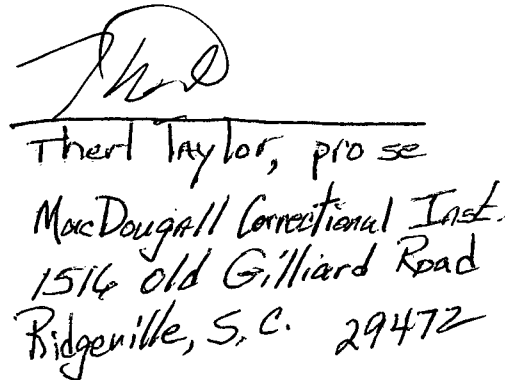 Therl Taylor, pro se
MacDougall Correctional Inst.
1516 Old Gilliard Road
Ridgeville, S.C. 29472